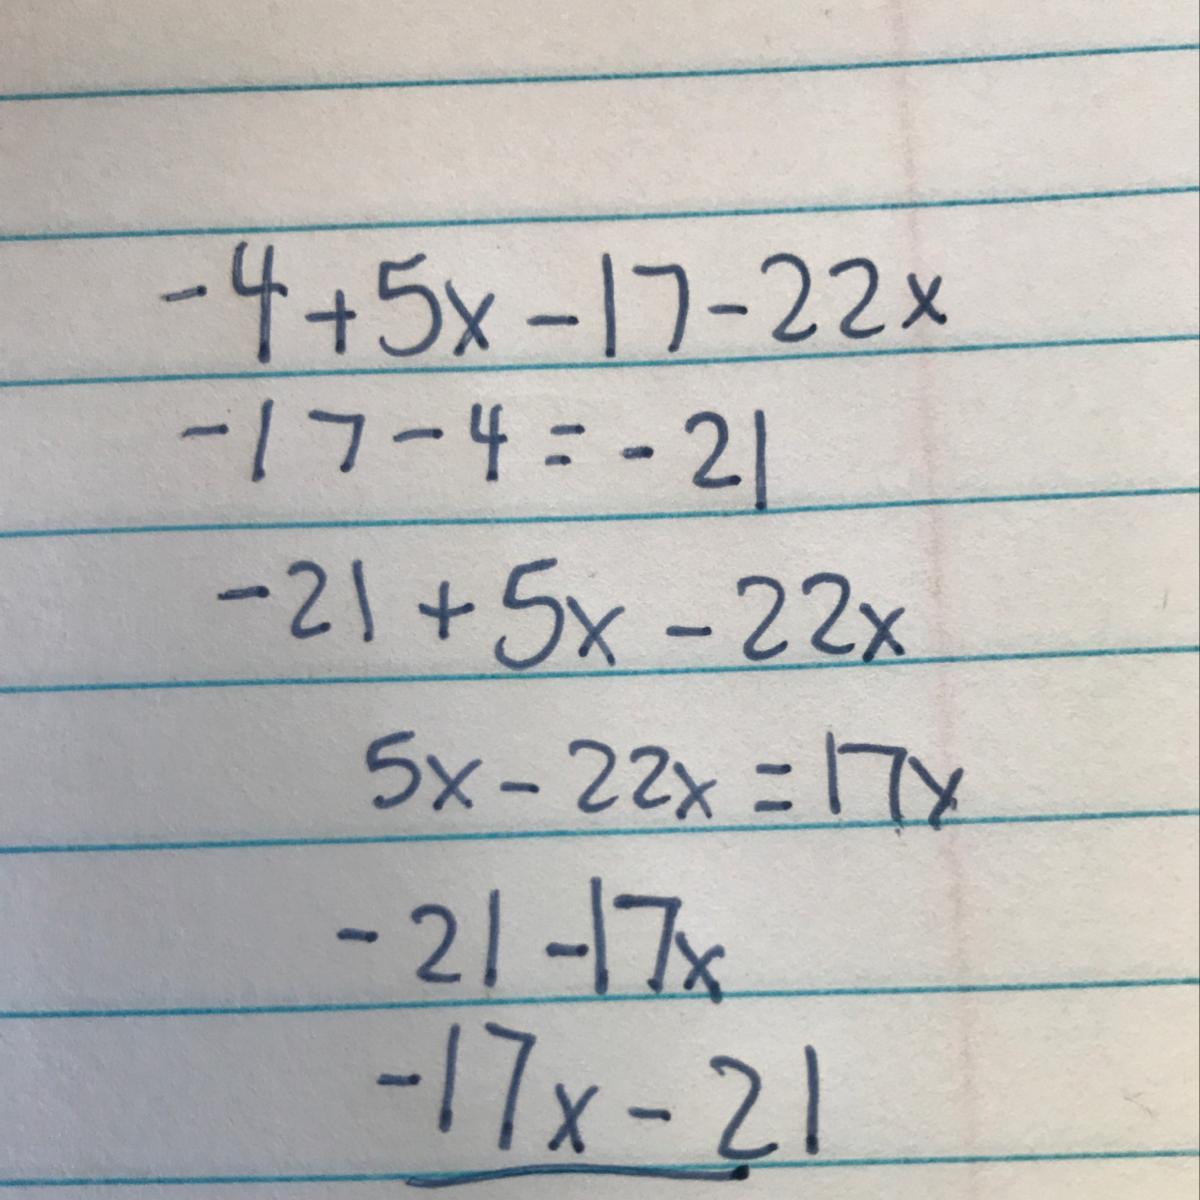 -4+5x-17-22x
-17-4=-21
-21+5x-22x
5x-22x=17x
-21-17x
-17x-21